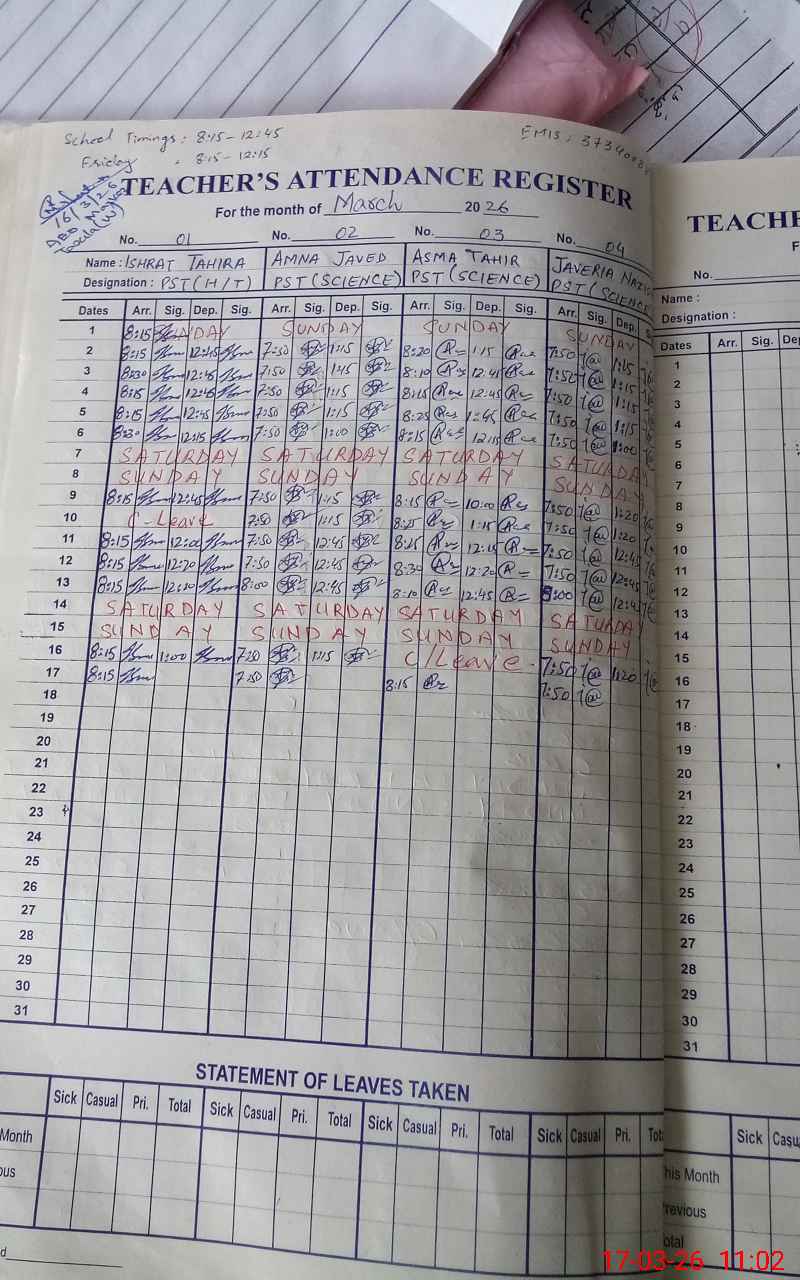 School Timings : 8:15 - 12:45
Friday : 8:15 - 12:15
EMIS : 373400
16/3/26
TEACHER'S ATTENDANCE REGISTER
For the month of March 2026
No. 01 No. 02 No. 03 No. 04
Name : ISHRAT TAHIRA AMNA JAVED ASMA TAHIR JAVERIA
Designation : PST (H/T) PST (SCIENCE) PST (SCIENCE) PST (SCIENCE
Dates Arr. Sig. Dep. Sig. Arr. Sig. Dep. Sig. Arr. Sig. Dep. Sig. Arr. Sig. Dep. S
1 8:15 SUNDAY SUNDAY SUNDAY SUNDAY
2 8:15 12:45 7:50 1:15 8:20 1:15 7:50 1:15
3 8:30 12:45 7:50 1:45 8:10 12:45 7:50 1:15
4 8:15 12:45 7:50 1:15 8:15 12:45 7:50 1:15
5 8:15 12:45 7:50 1:15 8:25 1:45 7:50 1:15
6 8:30 12:15 7:50 1:00 8:15 12:15 7:50 1:00
7 SATURDAY SATURDAY SATURDAY SATURDAY
8 SUNDAY SUNDAY SUNDAY SUNDAY
9 8:15 12:45 7:50 1:15 8:15 10:00 7:50 1:20
10 C-Leave 7:50 1:15 8:25 1:15 7:50 1:20
11 8:15 12:00 7:50 12:45 8:25 12:15 7:50 12:45
12 8:15 12:20 7:50 12:45 8:30 12:20 7:50 12:45
13 8:15 12:20 8:00 12:45 8:10 12:45 8:00 12:45
14 SATURDAY SATURDAY SATURDAY SATURDAY
15 SUNDAY SUNDAY SUNDAY SUNDAY
16 8:15 1:00 7:50 1:15 C/Leave 7:50 1:20
17 8:15 7:50 8:15 7:50
18
19
20
21
22
23
24
25
26
27
28
29
30
31
STATEMENT OF LEAVES TAKEN
Sick Casual Pri. Total Sick Casual Pri. Total Sick Casual Pri. Total Sick Casual Pri. Tot
Month
ous
d
TEACHE
F
No.
Name :
Designation :
Dates Arr. Sig. Dep
1
2
3
4
5
6
7
8
9
10
11
12
13
14
15
16
17
18
19
20
21
22
23
24
25
26
27
28
29
30
31
Sick Casu
his Month
revious
otal
17-03-26 11:02